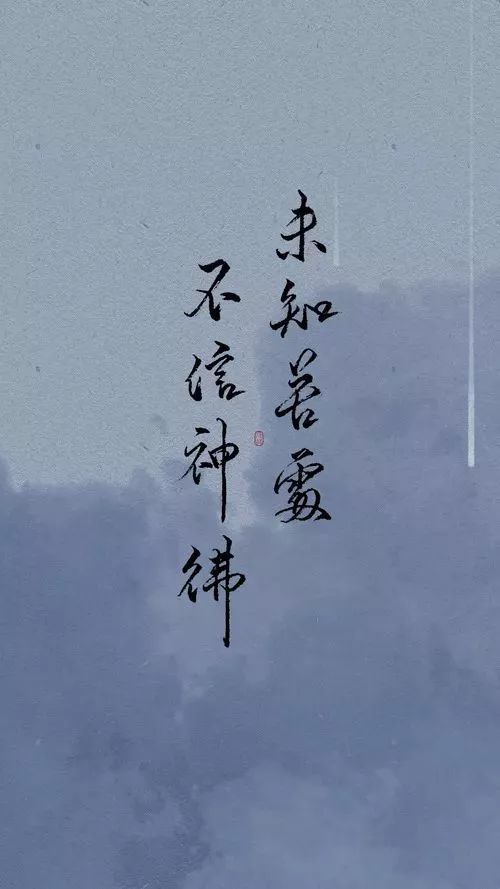 未知苦處
不信神彿